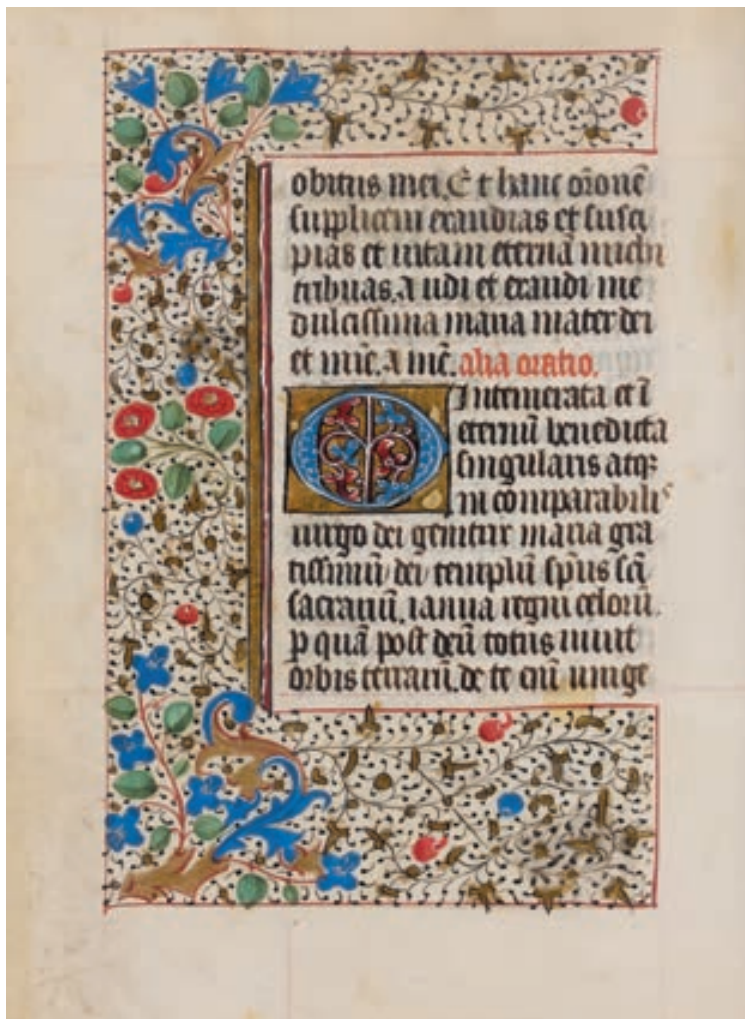 obitus mei. Et hanc oronē
supplicem exaudias et susci
pias et vitam eternā michi
tribuas. Audi et exaudi me
dulcissima maria mater dei
et mīe. Amē. alia oratio.
O Intemerata et ī
eternū benedicta
singularis atqꝫ
incomparabilis
uirgo dei genitrix maria gra
tissimū dei templū spūs scī
sacrariū. ianua regni celorū.
p quā post deū totus uiuit
orbis terrarū. de te enī unige